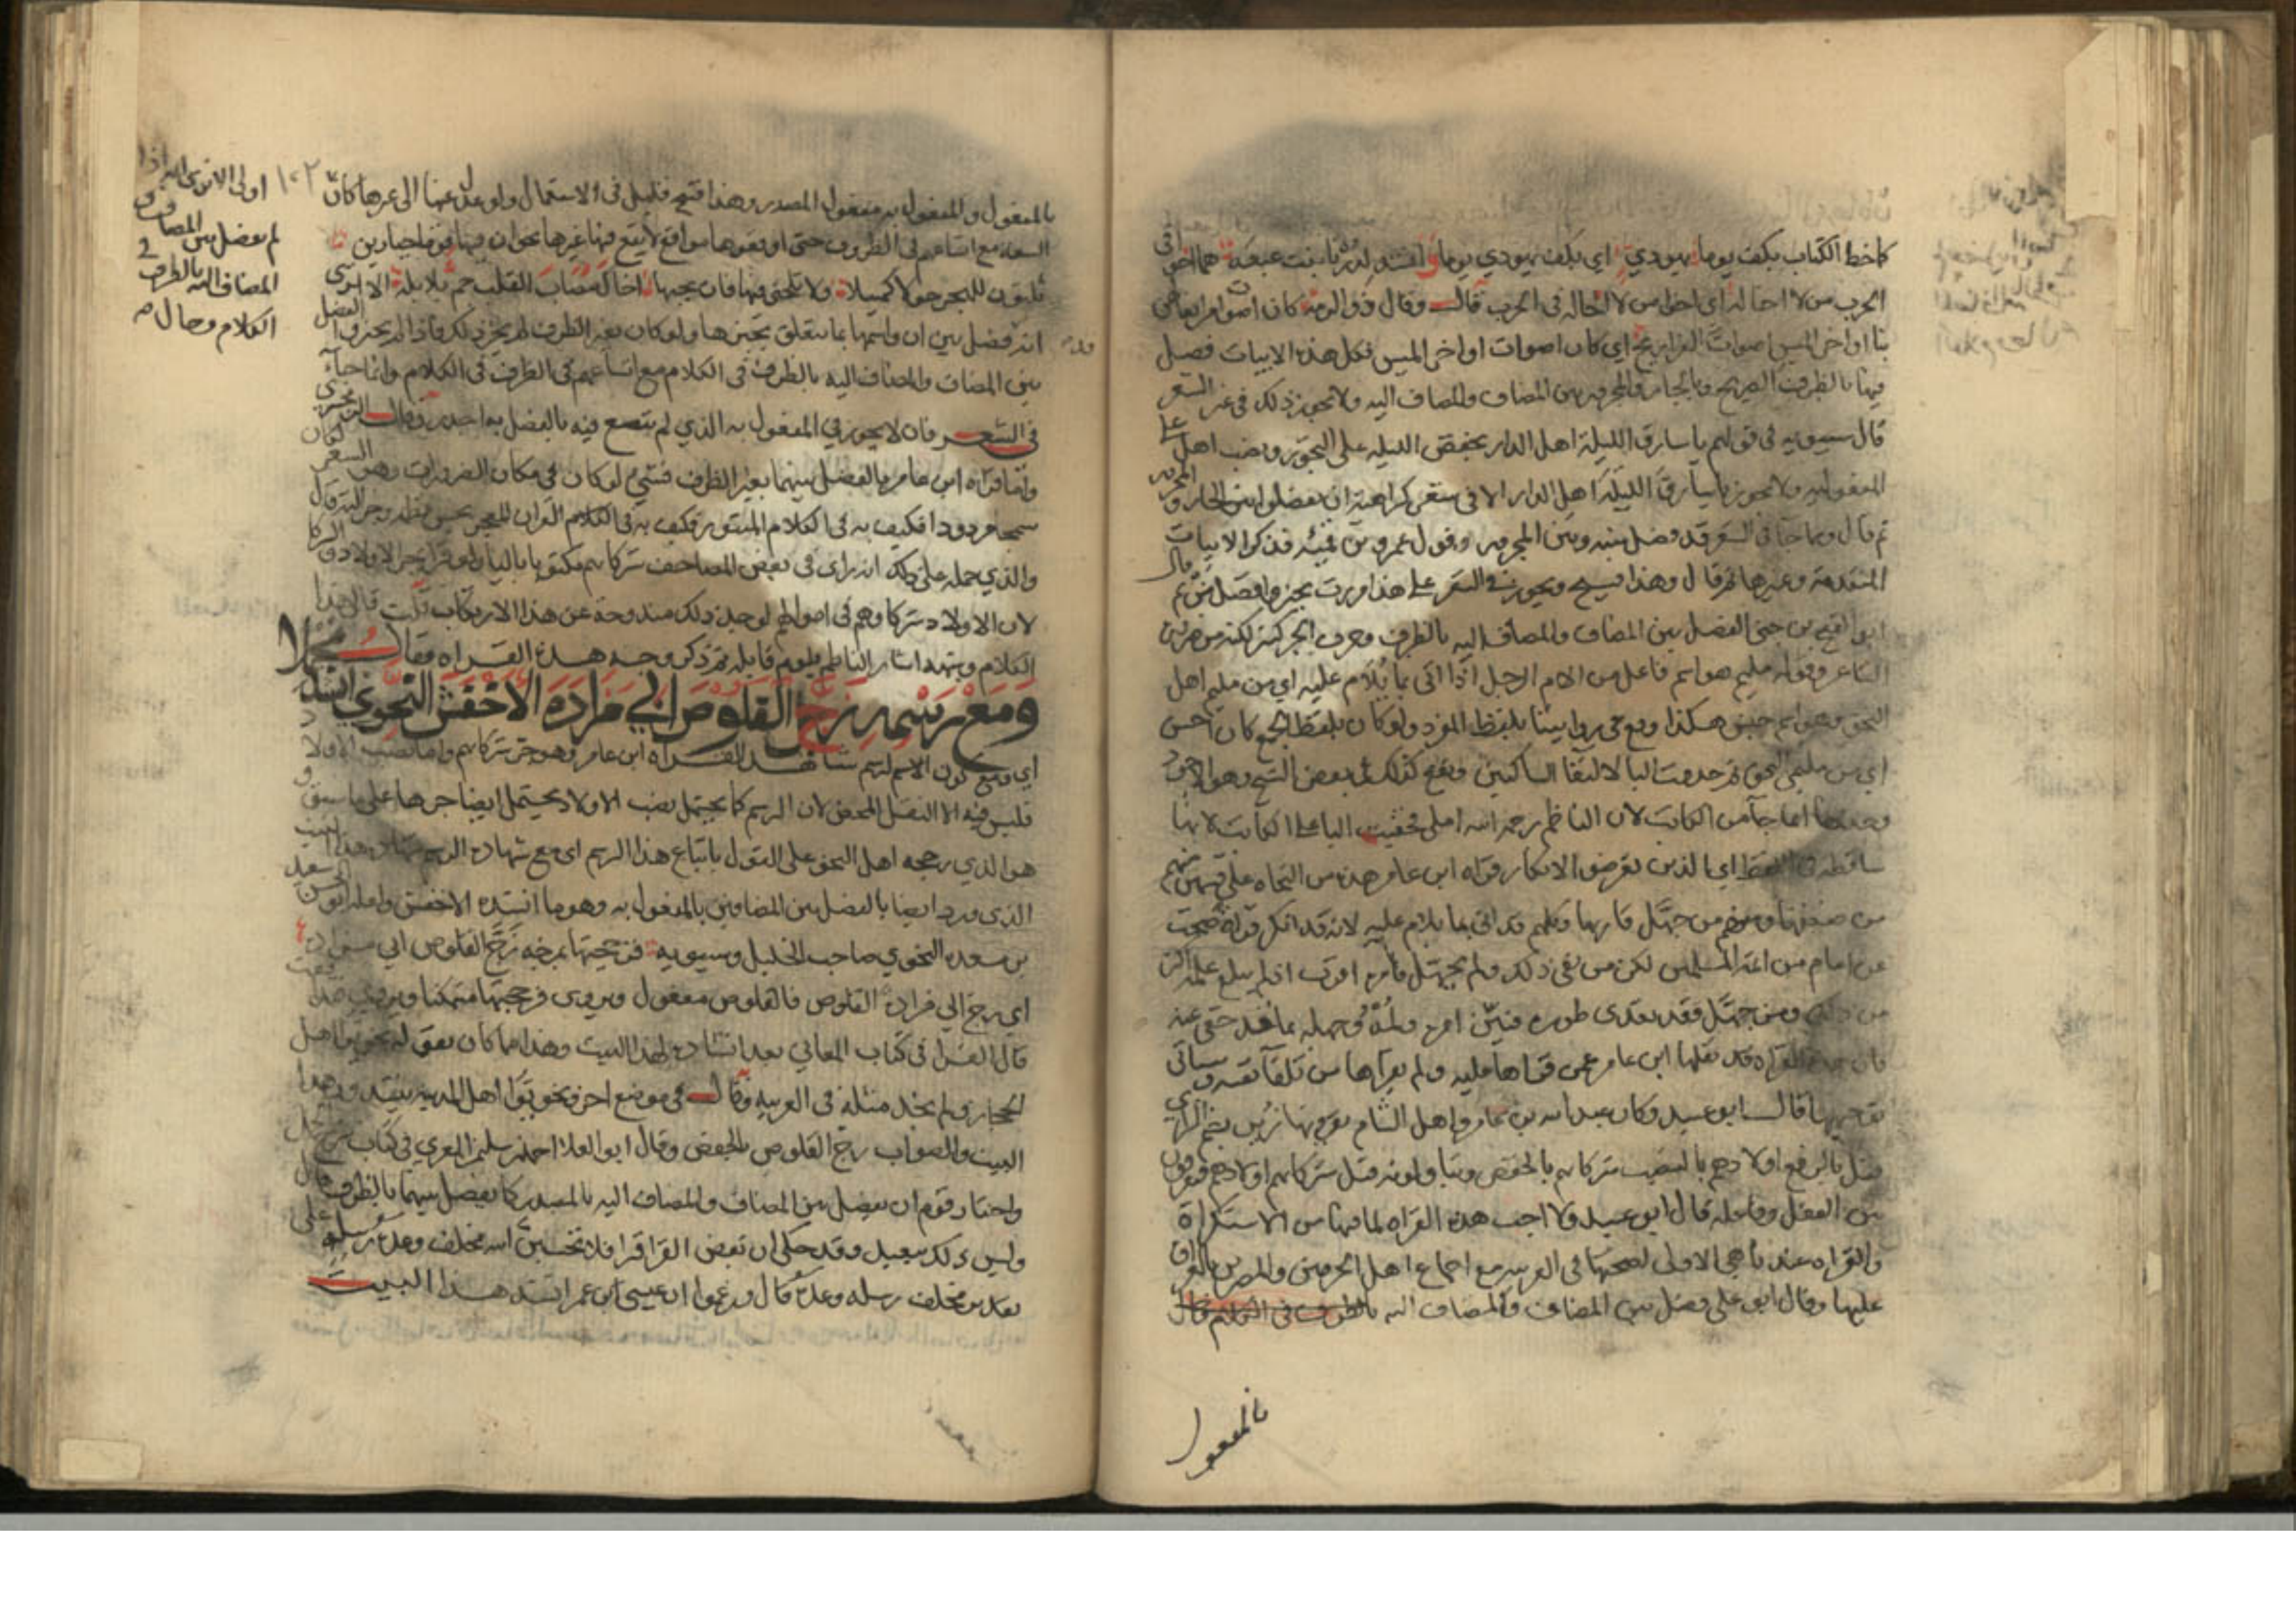 كاخط الكتاب بكف يوما يهودي اي بكف يهودي يوما وانشد لدرنا بنت عبعبة هما اخوا
الحرب من لا اخا له اي اخوا من لا اخا له في الحرب قال وقال ذو الرمة كان اصوات من ايغالهن
بنا اواخر الميس اصوات الفراريج اي كان اصوات اواخر الميس فكل هذه الابيات فصل
فيها بالظرف الصريح وبالجار والمجرور بين المضاف والمضاف اليه ولا يجوز ذلك في غير الشعر
قال سيبويه في قولهم يا سارق الليلة اهل الدار بخفض الليلة على التجوز ونصب اهل على
المفعولية ولا يجوز يا سارق الليلة اهل الدار الا في شعر كراهية ان يفصلوا بين الجار والمجرور
ثم قال ومما جا في الشعر قد فصل بينه وبين المجرور وقول عمرو بن قميئة فذكر الابيات
المتقدمة وغيرها ثم قال وهذا قبيح ويجوز في الشعر على هذا مررت بخير وافضل من ثم وقال
ابو الفتح بن جني الفصل بين المضاف والمضاف اليه بالظرف وحرف الجر كثير لكنه من ضرورة
الشاعر وقوله مليم هو اسم فاعل من الام الرجل اذا اتى بما يلام عليه اي من مليم اهل
النحو وهو اسم جنس هكذا وقع في روايتنا بلفظ المفرد ولو كان بلفظ الجمع كان احسن
اي من مليمي النحو ثم حذفت اليا لالتقا الساكنين وقع كذلك في بعض النسخ وهو الاجود
وحذفها انما جا من الكاتب لان الناظم رحمه الله املى فخفيت اليا على الكاتب لانها
ساقطة في اللفظ اي الذين تعرضوا لانكار قراة ابن عامر هذه من النحاة على قسمين منهم
من ضعفها ومنهم من جهل قاريها وكلهم قد اتى بما يلام عليه لانه قد انكر قراة صحت
عن امام من ائمة المسلمين لكن من نفى ذلك ولم يجهل فامره اقرب اذ لم يبلغ علمه اكثر
من ذلك ومن جهل فقد تعدى طوره فبين امره ولمه وجهله بما قد خفي عنه
فان هذه القراة قد نقلها ابن عامر عمن قراها عليه ولم يقراها من تلقا نفسه وسياتي
توجيهها قال ابو عبيد وكان عبد الله بن عامر واهل الشام يقرونها زين بضم الزاي
قتل بالرفع اولادهم بالنصب شركايهم بالخفض ويتاولونه قتل شركايهم اولادهم فيفرقون
بين الفعل وفاعله قال ابو عبيد ولا احب هذه القراة لما فيها من الاستكراه
والقراة عندنا هي الاولى لصحتها في العربية مع اجماع اهل الحرمين والمصرين بالعراق
عليها وقال ابو علي فصل بين المضاف والمضاف اليه بالظرف في الكلام قال
بالمفعول
بالمفعول والمفعول به مفعول المصدر وهذا قبيح قليل في الاستعمال ولو عدل عنها الى غيرها كان
١٠٢
اولى الا ترى انه اذا
لم يفصل بين المضاف و
المضاف اليه بالظرف في
الكلام وحال
السعة مع اتساعهم في الظروف حتى اوقعوها مواقع لا يقع فيها غيرها نحو ان فيها قوما جبارين
فلا تلحني فيها فان بحبها اخاك مصاب القلب جم بلابله الا ترى
انه فصل بين ان واسمها بما يتعلق بخبرها ولو كان بغير الظرف لم يجز ذلك فاذا لم يجيزوا الفصل
بين المضاف والمضاف اليه بالظرف في الكلام مع اتساعهم في الظرف في الكلام وانما جا
في الشعر فان لا يجوز في المفعول به الذي لم يتسع فيه بالفصل به اجدر وقال الزمخشري
واما قراة ابن عامر فالفصل بينهما بغير الظرف فشي لو كان في مكان الضرورات وهو الشعر لكان
سمجا مردودا فكيف به في الكلام المنثور فكيف به في الكلام القران المعجز بحسن نظمه وجزالته قال
والذي حمله على ذلك انه راى في بعض المصاحف شركايهم مكتوبا باليا ولو قرا بجر الاولاد والشركا
لان الاولاد شركاوهم في اموالهم لوجد ذلك مندوحة عن هذا الارتكاب قلت قال هذا
الكلام وبنحوه اشار الناظم بلوم قايله ثم ذكر وجه هذه القراة فقال مجملا
ومع رسمه زج القلوص ابي مزادة الاخفش النحوي انشد
اي ومع كون الاسم لرسم شاهد لقراة ابن عامر وهو جر شركايهم واما نصب الاولاد
فليس فيه الا النقل المحض لان الرسم كما يحتمل نصب الاولاد يحتمل ايضا جرها على ما سبق و
هو الذي رجحه اهل النحو على القول باتباع هذا الرسم اي مع شهادة الرسم شهادة هذا البيت
الذي ورد ايضا بالفصل بين المضافين بالمفعول به وهو ما انشده الاخفش ولعله ابو الحسن سعيد
بن مسعدة النحوي صاحب الخليل وسيبويه فزججتها بمزجة زج القلوص ابي مزادة
اي زج ابي مزادة القلوص فالقلوص مفعول ويروى فزججتها متمكنا
قال الفرا في كتاب المعاني بعد انشاده لهذا البيت وهذا مما كان يقوله نحويو اهل
الحجاز ولم نجد مثله في العربية وقال في موضع اخر ونحويو اهل المدينة ينشدون هذا
البيت والصواب زج القلوص بالخفض وقال ابو العلا احمد بن سليمن المعري في كتاب شرح الجمل
واختار قوم ان يفصل بين المضاف والمضاف اليه بالمصدر كما يفصل بينهما بالظرف قال
وليس ذلك ببعيد وقد حكي ان بعض القرا قرا فلا تحسبن الله مخلف وعده رسله على
تقدير مخلف رسله وعده قال وزعموا ان عيسى بن عمر انشد هذا البيت